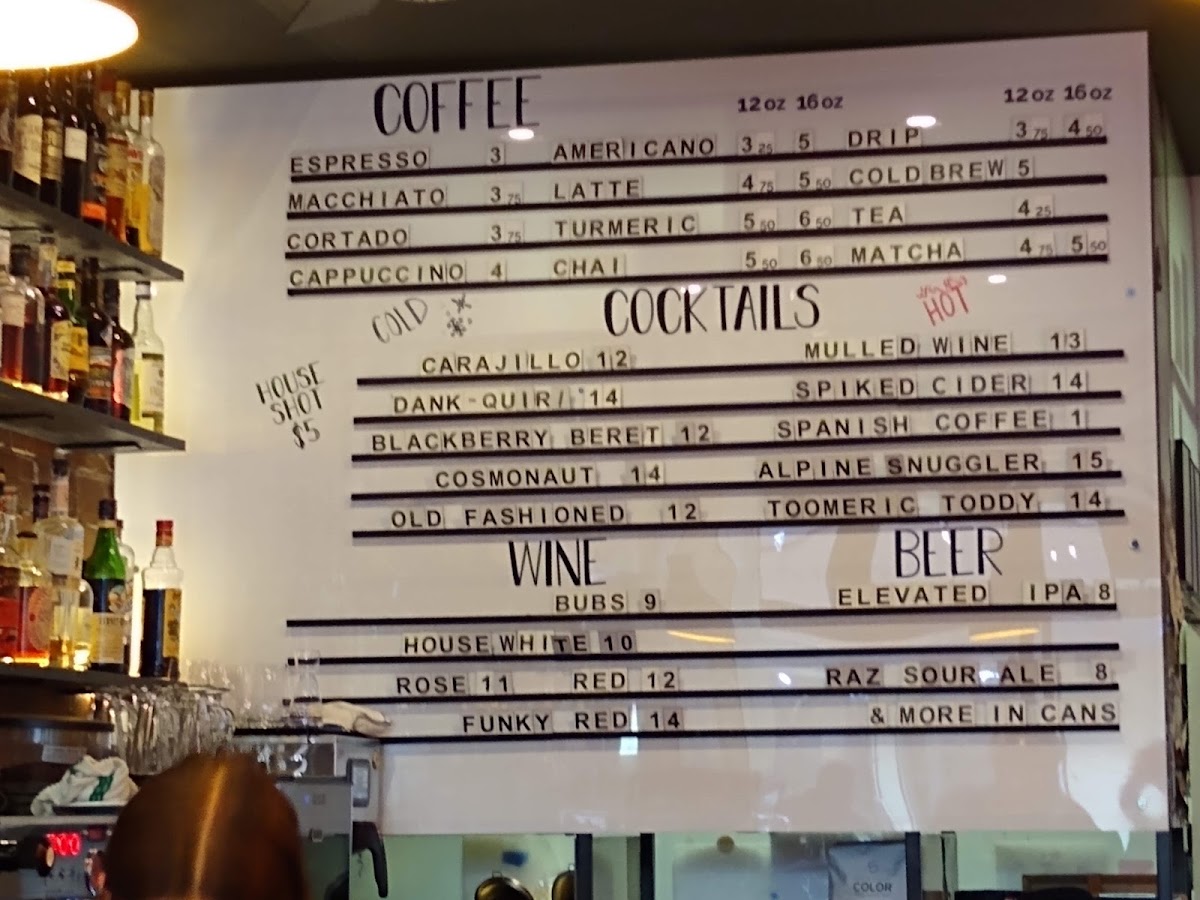 COFFEE
12 oz 16 oz 12 oz 16 oz
ESPRESSO 3 AMERICANO 3 25 5 DRIP 3 75 4 50
MACCHIATO 3 75 LATTE 4 75 5 50 COLD BREW 5
CORTADO 3 75 TURMERIC 5 50 6 50 TEA 4 25
CAPPUCCINO 4 CHAI 5 50 6 50 MATCHA 4 75 5 50
COLD COCKTAILS HOT
HOUSE
SHOT
$5
CARAJILLO 12 MULLED WINE 13
DANK-QUIRI 14 SPIKED CIDER 14
BLACKBERRY BERET 12 SPANISH COFFEE 1
COSMONAUT 14 ALPINE SNUGGLER 15
OLD FASHIONED 12 TOOMERIC TODDY 14
WINE BEER
BUBS 9 ELEVATED IPA 8
HOUSE WHITE 10
ROSE 11 RED 12 RAZ SOUR ALE 8
FUNKY RED 14 & MORE IN CANS
COLOR